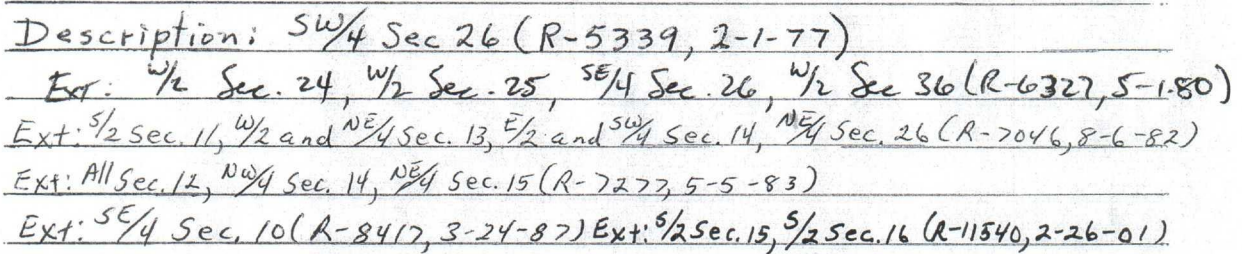 Description: SW/4 Sec 26 (R-5339, 2-1-77)
Ext: W/2 Sec. 24, W/2 Sec. 25, SE/4 Sec. 26, W/2 Sec 36 (R-6327, 5-1-80)
Ext: S/2 Sec. 11, W/2 and NE/4 Sec. 13, E/2 and SW/4 Sec. 14, NE/4 Sec. 26 (R-7046, 8-6-82)
Ext: All Sec. 12, NW/4 Sec. 14, NE/4 Sec. 15 (R-7277, 5-5-83)
Ext: SE/4 Sec. 10 (R-8417, 3-24-87) Ext: S/2 Sec. 15, S/2 Sec. 16 (R-11540, 2-26-01)